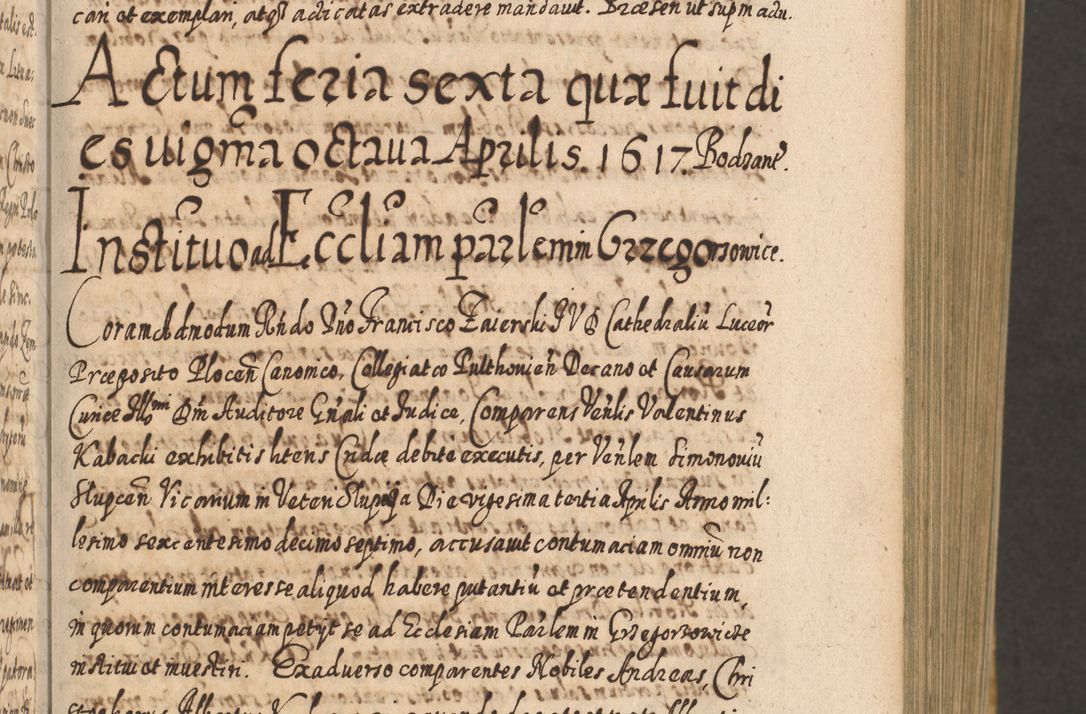 cari et exemplari, atq3 acticatas extradere mandauit. Præsen ut sup in actu.
Actum feria sexta quæ fuit di
es uigma octaua Aprilis. 1617. Bodzane.
Institutio ad Eccliam parlem in Grzegorzowice.
Coram Admodum Rndo Dno Francisco Zaierski IVD Cathedraliu Luceor
Præposito Plocen Canonico, Collegiatæ Pulthouien Decano et Causarum
Curiæ Illmi Dni Auditore Gnali et Iudice, Comparens Venlis Valentinus
Kabacki exhibitis litens Cridæ debite executis, per Venlem Simonouiu
Slupcen Vicarium in Veteri Slupia Die vigesima tertia Aprilis Anno mil:
lesimo sexcentesimo decimo septimo, accusauit contumaciam omniu non
comparentium interesse aliquod habere putantiu et prætendentium,
in quorum contumaciam petijt se ad Ecclesiam Parlem in Grzegorzowicze
institui et inuestiri. Exaduerso comparentes Nobiles Andreas, Chri